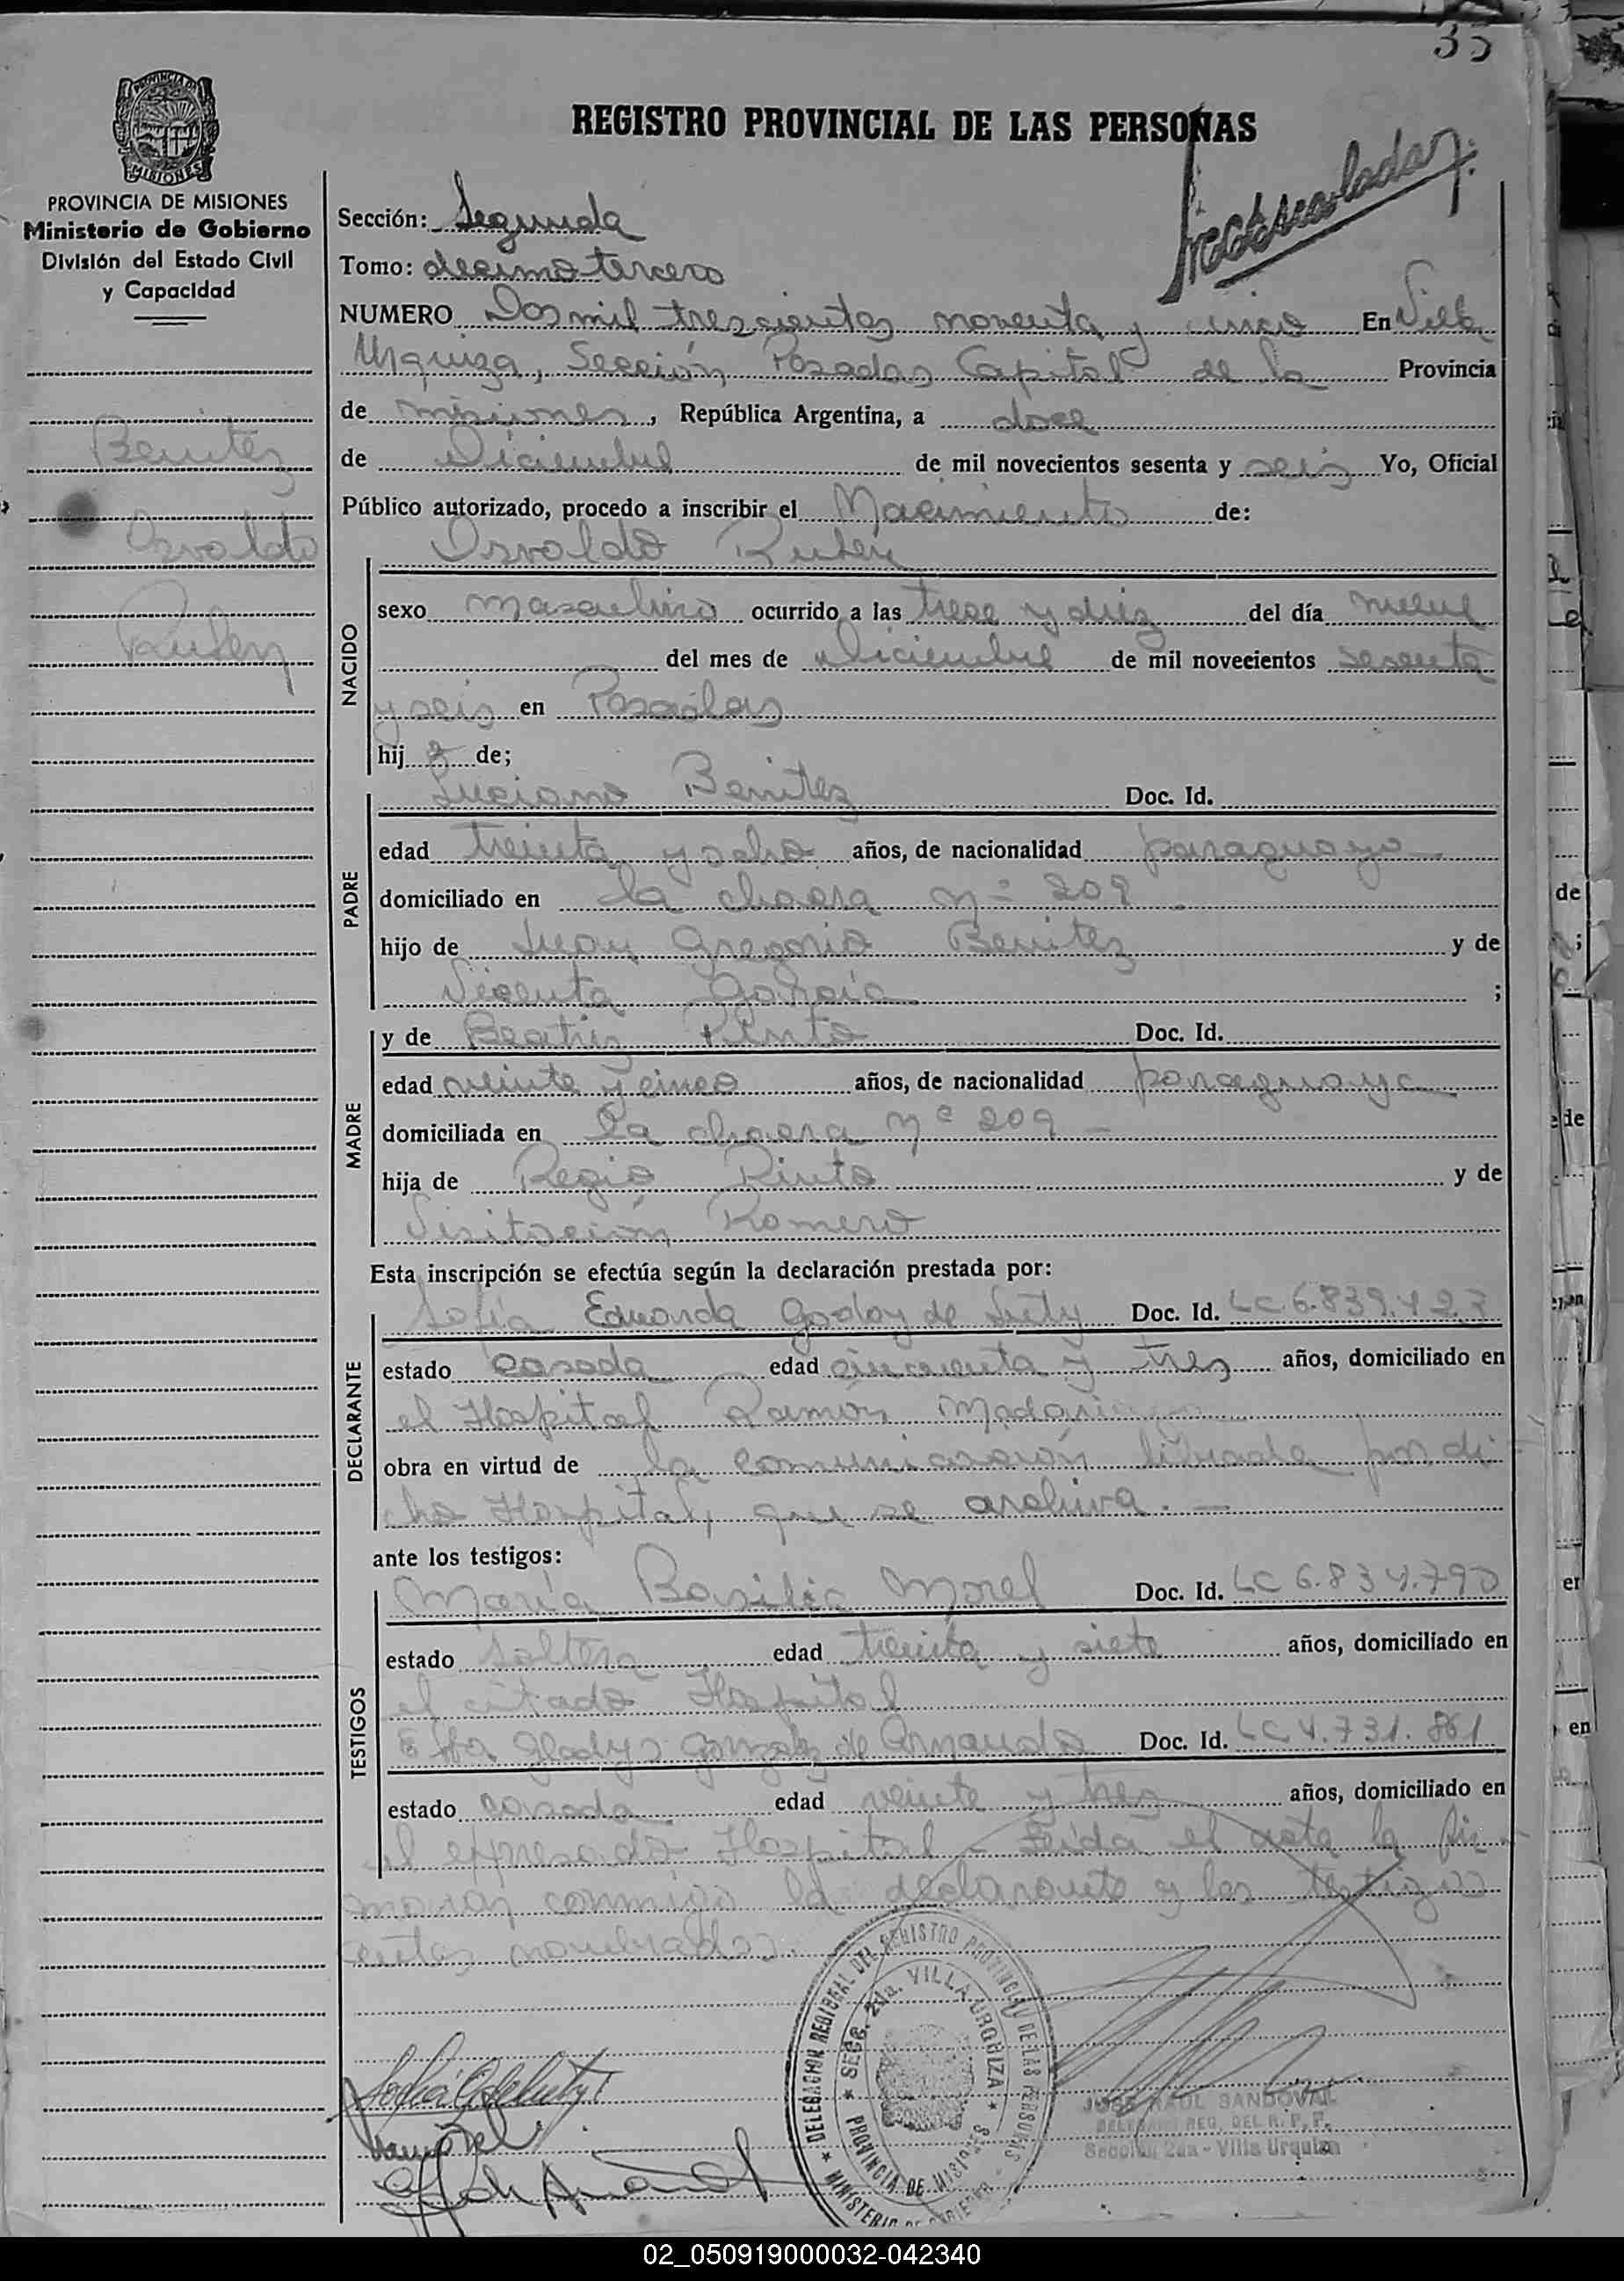 35
REGISTRO PROVINCIAL DE LAS PERSONAS
PROVINCIA DE MISIONES
Ministerio de Gobierno
División del Estado Civil
y Capacidad
MISIONES
Sección: Segunda
Tomo: decimo tercero
NUMERO Dos mil trescientos noventa y cinco En Villa
Urquiza, Sección Posadas Capital de la Provincia
de misiones, República Argentina, a doce
de Diciembre de mil novecientos sesenta y seis Yo, Oficial
Público autorizado, procedo a inscribir el Nacimiento de:
Benitez
Osvaldo
Ruben
Osvaldo Ruben
NACIDO
sexo masculino ocurrido a las trece y diez del día nueve
del mes de Diciembre de mil novecientos sesenta
y seis en Posadas
hij o de;
PADRE
Luciano Benitez Doc. Id.
edad treinta y ocho años, de nacionalidad paraguayo
domiciliado en la chacra nº 209
hijo de Juan Gregorio Benitez y de
Vicenta García ;
MADRE
y de Beatriz Pinto Doc. Id.
edad veinte y cinco años, de nacionalidad paraguaya
domiciliada en la chacra nº 209 -
hija de Regio Pinto y de
Visitación Romero
Esta inscripción se efectúa según la declaración prestada por:
DECLARANTE
Sofía Eduarda Godoy de Doc. Id. LC 6.839.423
estado casada edad cincuenta y tres años, domiciliado en
el Hospital Ramón
obra en virtud de la comunicación librada por di-
cho Hospital, que se archiva. -
ante los testigos:
TESTIGOS
María Basilia Morel Doc. Id. LC 6.834.790
estado soltera edad treinta y siete años, domiciliado en
el citado Hospital
Gladys Gonzalez de Doc. Id. LC 4.731.861
estado casada edad veinte y tres años, domiciliado en
el expresado Hospital - Leída el acta la fir-
maron conmigo la declarante y los testigos
antes nombrados.
DELEGACION REGIONAL DEL REGISTRO PROVINCIAL DE LAS PERSONAS
SECC. 2da. VILLA URQUIZA
PROVINCIA DE MISIONES
MINISTERIO DE GOBIERNO
JOSE RAUL SANDOVAL
DELEGADO REG. DEL R. P. P.
Sección 2da - Villa Urquiza
02_050919000032-042340